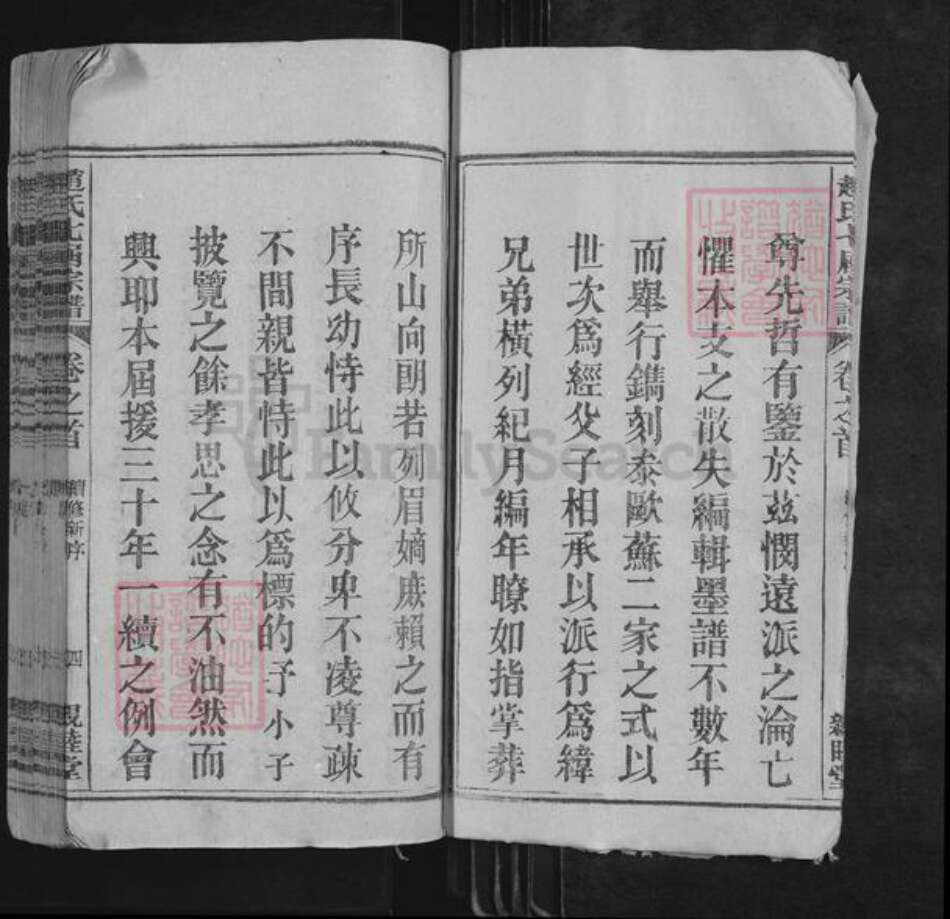 尊先哲有鑒於茲憫遠派之淪亡
懼本支之散失編輯墨譜不數年
而舉行鐫刻泰歐蘇二家之式以
世次爲經父子相承以派行爲緯
兄弟橫列紀月編年瞭如指掌葬
所山向朗若列眉嫡庶賴之而有
序長幼恃此以攸分卑不凌尊疎
不間親皆恃此以爲標的予小子
披覽之餘孝思之念有不油然而
興耶本屆援三十年一續之例會
趙氏七甲宗譜
卷之首
續修新序
四
親睦堂
FamilySearch